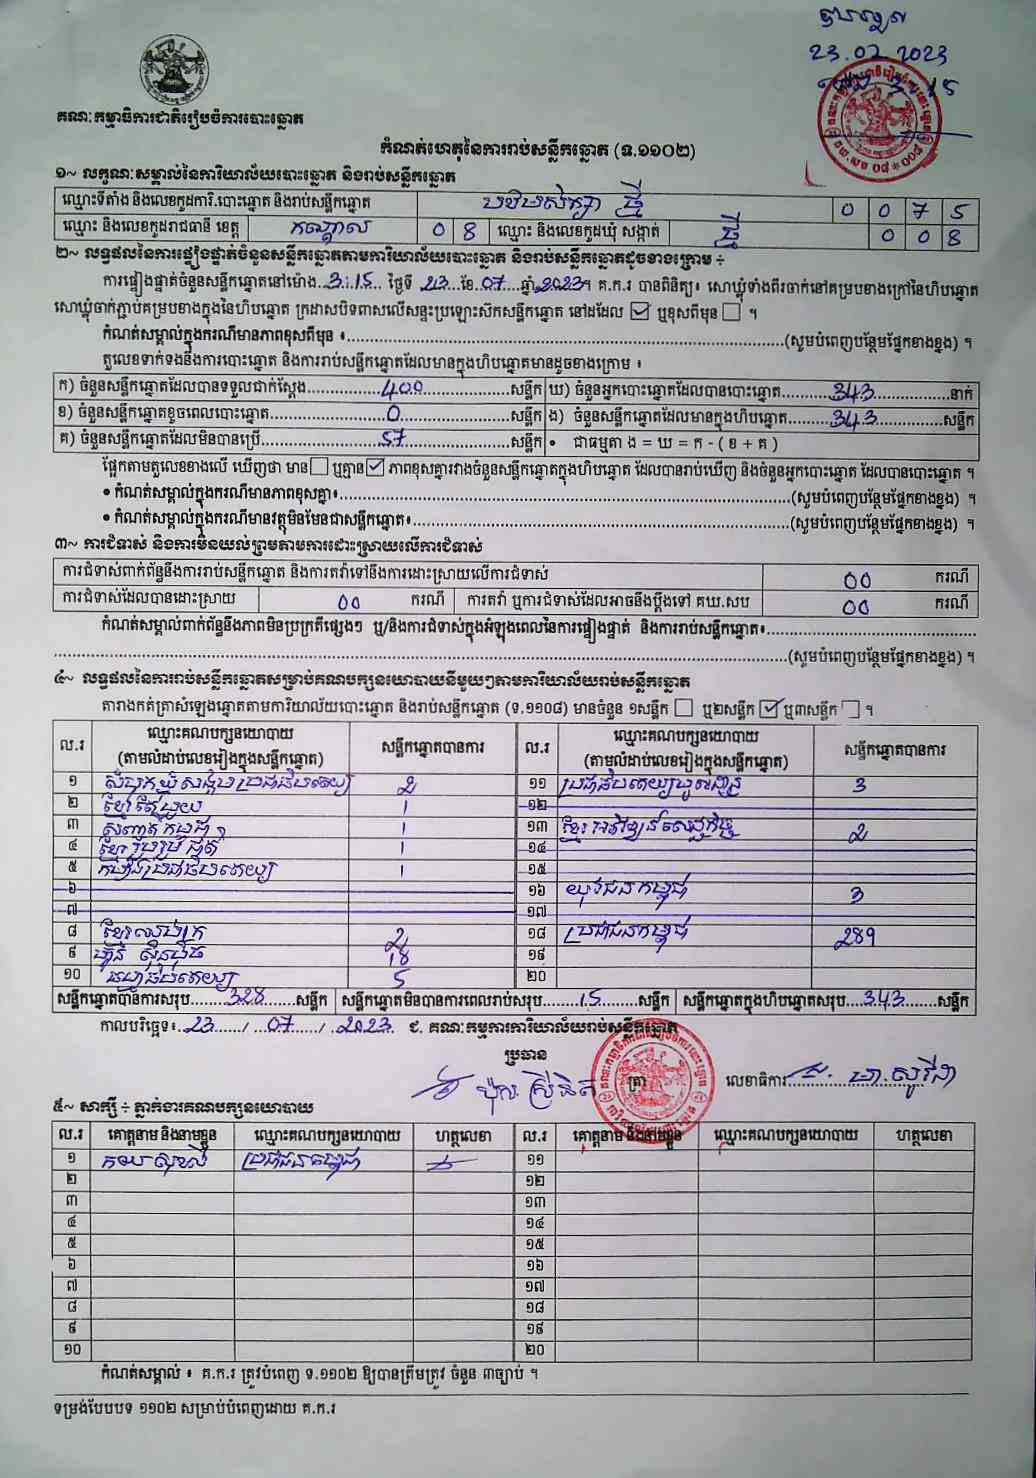 23.07.2023
គណៈកម្មាធិការជាតិរៀបចំការបោះឆ្នោត
កំណត់ហេតុនៃការរាប់សន្លឹកឆ្នោត (ទ.១១០២)
១~ លក្ខណៈសម្គាល់នៃការិយាល័យបោះឆ្នោត និងរាប់សន្លឹកឆ្នោត
ឈ្មោះទីតាំង និងលេខកូដការិ.បោះឆ្នោត និងរាប់សន្លឹកឆ្នោត បឋមសិក្សា ថ្មី 0 0 7 5
ឈ្មោះ និងលេខកូដរាជធានី ខេត្ត កណ្តាល 0 8 ឈ្មោះ និងលេខកូដឃុំ សង្កាត់ ថ្មី 0 0 8
២~ លទ្ធផលនៃការផ្ទៀងផ្ទាត់ចំនួនសន្លឹកឆ្នោតតាមការិយាល័យបោះឆ្នោត និងរាប់សន្លឹកឆ្នោតដូចខាងក្រោម ÷
ការផ្ទៀងផ្ទាត់ចំនួនសន្លឹកឆ្នោតនៅម៉ោង..3:15.. ថ្ងៃទី 23 ខែ.07...ឆ្នាំ.2023។ គ.ក.រ បានពិនិត្យ៖ សោឃ្លុំទាំងពីរចាក់នៅគម្របខាងក្រៅនៃហិបឆ្នោត
សោឃ្លុំចាក់ភ្ជាប់គម្របខាងក្នុងនៃហិបឆ្នោត ក្រដាសបិទពាសលើសន្ទះប្រឡោះសិកសន្លឹកឆ្នោត នៅដដែល ☑ ឬខុសពីមុន ☐ ។
កំណត់សម្គាល់ក្នុងករណីមានភាពខុសពីមុន ៖.....(សូមបំពេញបន្ថែមផ្នែកខាងខ្នង) ។
តួលេខទាក់ទងនឹងការបោះឆ្នោត និងការរាប់សន្លឹកឆ្នោតដែលមានក្នុងហិបឆ្នោតមានដូចខាងក្រោម ៖
ក) ចំនួនសន្លឹកឆ្នោតដែលបានទទួលជាក់ស្តែង.....400.....សន្លឹក ឃ) ចំនួនអ្នកបោះឆ្នោតដែលបានបោះឆ្នោត.....343.....នាក់
ខ) ចំនួនសន្លឹកឆ្នោតខូចពេលបោះឆ្នោត.....0.....សន្លឹក ង) ចំនួនសន្លឹកឆ្នោតដែលមានក្នុងហិបឆ្នោត.....343.....សន្លឹក
គ) ចំនួនសន្លឹកឆ្នោតដែលមិនបានប្រើ.....57.....សន្លឹក • ជាធម្មតា ង = ឃ = ក - ( ខ + គ )
ផ្អែកតាមតួលេខខាងលើ ឃើញថា មាន ☐ ឬគ្មាន ☑ ភាពខុសគ្នារវាងចំនួនសន្លឹកឆ្នោតក្នុងហិបឆ្នោត ដែលបានរាប់ឃើញ និងចំនួនអ្នកបោះឆ្នោត ដែលបានបោះឆ្នោត ។
• កំណត់សម្គាល់ក្នុងករណីមានភាពខុសគ្នា៖.....(សូមបំពេញបន្ថែមផ្នែកខាងខ្នង) ។
• កំណត់សម្គាល់ក្នុងករណីមានវត្ថុមិនមែនជាសន្លឹកឆ្នោត៖.....(សូមបំពេញបន្ថែមផ្នែកខាងខ្នង) ។
៣~ ការជំទាស់ និងការមិនយល់ព្រមតាមការដោះស្រាយលើការជំទាស់
ការជំទាស់ពាក់ព័ន្ធនឹងការរាប់សន្លឹកឆ្នោត និងការតវ៉ាទៅនឹងការដោះស្រាយលើការជំទាស់ 00 ករណី
ការជំទាស់ដែលបានដោះស្រាយ 00 ករណី ការតវ៉ា ឬការជំទាស់ដែលអាចនឹងប្តឹងទៅ គឃ.សប 00 ករណី
កំណត់សម្គាល់ពាក់ព័ន្ធនឹងភាពមិនប្រក្រតីផ្សេងៗ ឬ/និងការជំទាស់ក្នុងអំឡុងពេលនៃការផ្ទៀងផ្ទាត់ និងការរាប់សន្លឹកឆ្នោត៖.....
.....(សូមបំពេញបន្ថែមផ្នែកខាងខ្នង) ។
៤~ លទ្ធផលនៃការរាប់សន្លឹកឆ្នោតសម្រាប់គណបក្សនយោបាយនីមួយៗតាមការិយាល័យរាប់សន្លឹកឆ្នោត
តារាងកត់ត្រាសំឡេងឆ្នោតតាមការិយាល័យបោះឆ្នោត និងរាប់សន្លឹកឆ្នោត (ទ.១១០៨) មានចំនួន ១សន្លឹក ☐ ឬ២សន្លឹក ☑ ឬ៣សន្លឹក ☐ ។
ល.រ ឈ្មោះគណបក្សនយោបាយ (តាមលំដាប់លេខរៀងក្នុងសន្លឹកឆ្នោត) សន្លឹកឆ្នោតបានការ ល.រ ឈ្មោះគណបក្សនយោបាយ (តាមលំដាប់លេខរៀងក្នុងសន្លឹកឆ្នោត) សន្លឹកឆ្នោតបានការ
១ សំបុកឃ្មុំសង្គមប្រជាធិបតេយ្យ 2 ១១ ប្រជាធិបតេយ្យមូលដ្ឋាន 3
២ ខ្មែរតែមួយ 1 ១២
៣ 1 ១៣ ខ្មែរអភិវឌ្ឍន៍សេដ្ឋកិច្ច 2
៤ ខ្មែររួបរួមជាតិ 1 ១៤
៥ កម្លាំងប្រជាធិបតេយ្យ 1 ១៥
៦ ១៦ យុវជនកម្ពុជា 3
៧ ១៧
៨ 2 ១៨ ប្រជាជនកម្ពុជា 289
៩ ហ៊្វុនស៊ិនប៉ិច 18 ១៩
១០ ធម្មាធិបតេយ្យ 5 ២០
សន្លឹកឆ្នោតបានការសរុប.....328.....សន្លឹក សន្លឹកឆ្នោតមិនបានការពេលរាប់សរុប.....15.....សន្លឹក សន្លឹកឆ្នោតក្នុងហិបឆ្នោតសរុប.....343.....សន្លឹក
កាលបរិច្ឆេទ៖..23...../...07...../..2023. ជ. គណៈកម្មការការិយាល័យរាប់សន្លឹកឆ្នោត
ប្រធាន
ត្រា លេខាធិការ.....
៥~ សាក្សី ÷ ភ្នាក់ងារគណបក្សនយោបាយ
ល.រ គោត្តនាម និងនាមខ្លួន ឈ្មោះគណបក្សនយោបាយ ហត្ថលេខា ល.រ គោត្តនាម និងនាមខ្លួន ឈ្មោះគណបក្សនយោបាយ ហត្ថលេខា
១ ប្រជាជនកម្ពុជា ១១
២ ១២
៣ ១៣
៤ ១៤
៥ ១៥
៦ ១៦
៧ ១៧
៨ ១៨
៩ ១៩
១០ ២០
កំណត់សម្គាល់ ៖ គ.ក.រ ត្រូវបំពេញ ទ.១១០២ ឱ្យបានត្រឹមត្រូវ ចំនួន ៣ច្បាប់ ។
ទម្រង់បែបបទ ១១០២ សម្រាប់បំពេញដោយ គ.ក.រ